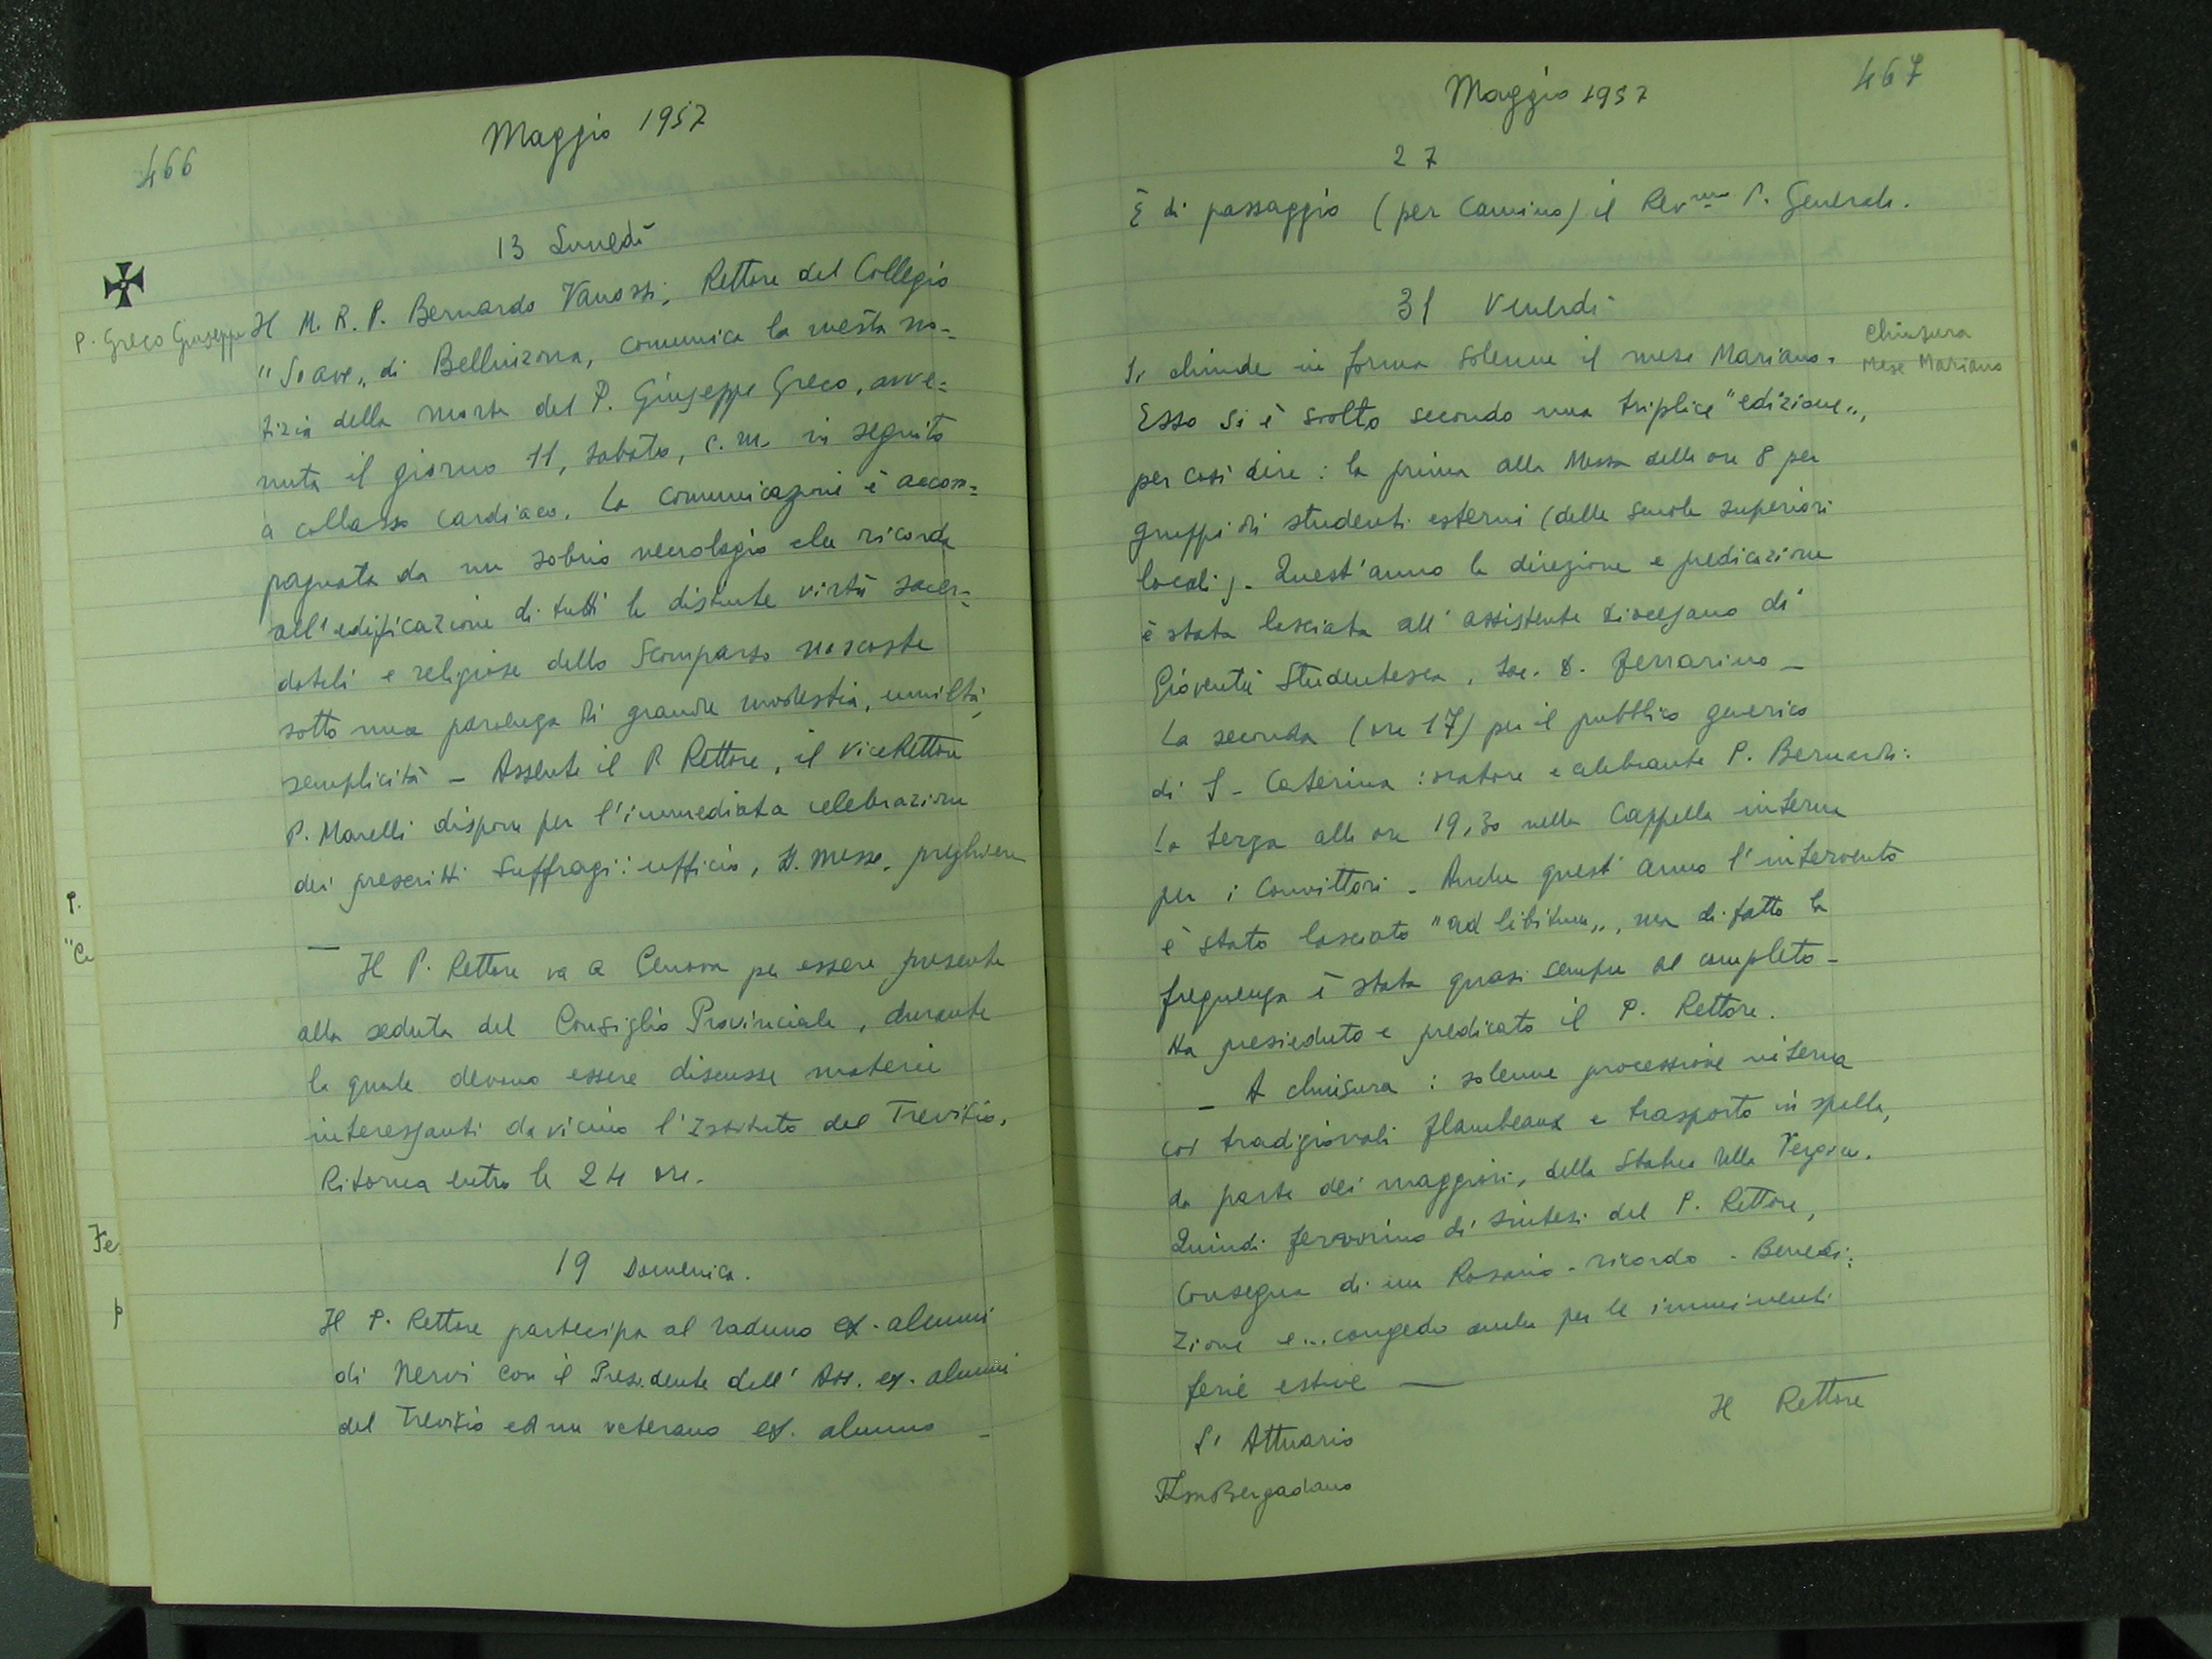 466
Maggio 1957
13 Lunedì
P. Greco Giuseppe
Il M. R. P. Bernardo Vanossi, Rettore del Collegio
"Soave„ di Bellinzona, comunica la mesta no=
tizia della morte del P. Giuseppe Greco, avve=
nuta il giorno 11, sabato, c. m. in seguito
a collasso cardiaco. La comunicazione è accom=
pagnata da un sobrio necrologio che ricorda
all'edificazione di tutti le distinte virtù sacer=
dotali e religiose dello Scomparso nascoste
sotto una parvenza di grande modestia, umiltà,
semplicità – Assente il P. Rettore, il ViceRettore
P. Marelli dispone per l'immediata celebrazione
dei prescritti Suffragi: ufficio, SS. Messe, preghiere
— Il P. Rettore va a Genova per essere presente
alla seduta del Consiglio Provinciale, durante
la quale devono essere discusse materie
interessanti da vicino l'Istituto del Trevisio.
Ritorna entro le 24 ore.
19 Domenica.
Il P. Rettore partecipa al raduno ex-alunni
di Nervi con il Presidente dell'Ass. ex-alunni
del Trevisio ed un veterano ex-alunno –
P.
"Ce
Fe
p
467
Maggio 1957
27
È di passaggio (per Camino) il Rev.mo P. Generale.
31 Venerdì
Chiusura
Mese Mariano
Si chiude in forma solenne il mese Mariano.
Esso si è svolto secondo una triplice "edizione„,
per così dire: la prima alla Messa delle ore 8 per
gruppi di studenti esterni (delle scuole superiori
locali). Quest'anno la direzione e predicazione
è stata lasciata all'assistente diocesano di
Gioventù Studentesca, Sac. D. Ferrarino –
La seconda (ore 17) per il pubblico generico
di S. Caterina: oratore e celebrante P. Bernardi:
La terza alle ore 19,30 nella Cappella interna
per i Convittori – Anche quest'anno l'intervento
è stato lasciato "ad libitum„, ma di fatto la
frequenza è stata quasi sempre al completo –
Ha presieduto e predicato il P. Rettore.
– A chiusura: solenne processione interna
coi tradizionali flambeaux e trasporto in spalla,
da parte dei maggiori, della Statua della Vergine.
Quindi fervorino di sintesi del P. Rettore,
Consegna di un Rosario-ricordo – Benedi=
zione e... congedo anche per le imminenti
ferie estive —
Il Rettore
L'Attuario
Bergadano